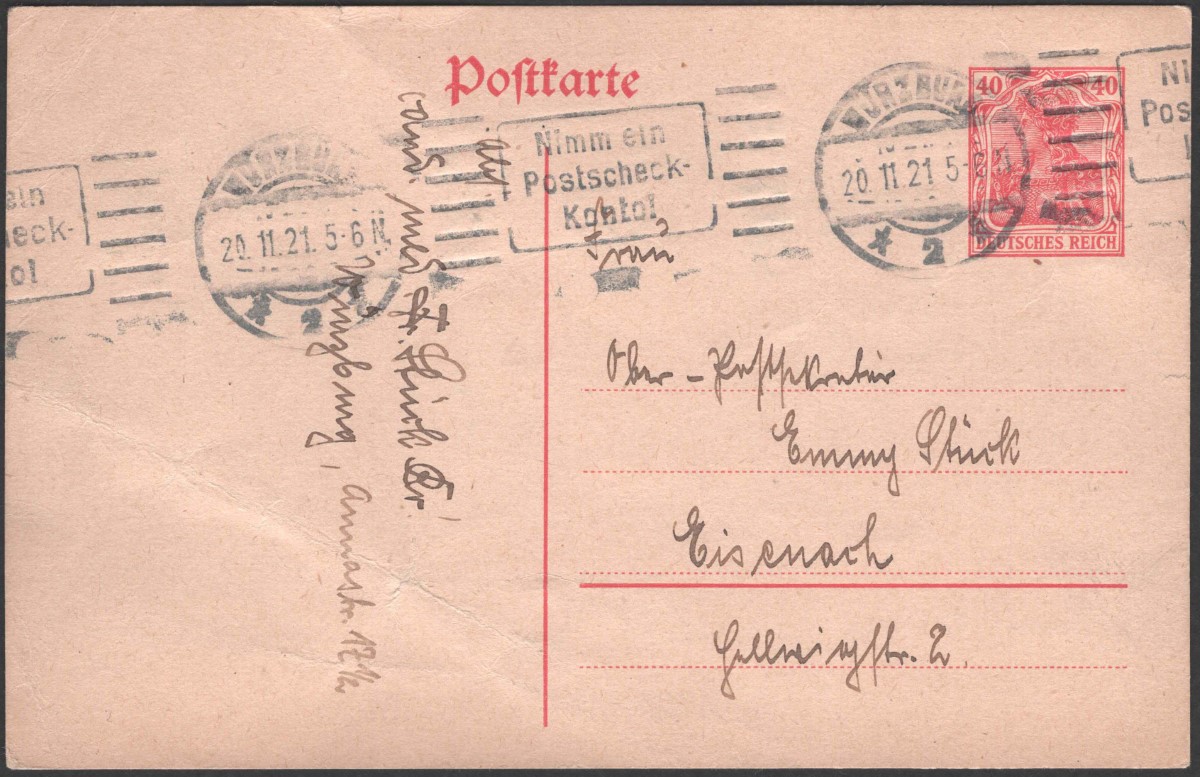 Postkarte
40 40
DEUTSCHES REICH
WÜRZBURG
20.11.21 5-6 N.
* 2
Nimm ein
Postscheck-
Konto!
WÜRZBURG
20.11.21. 5-6 N.
* 2
ein
heck-
o!
Ni
Pos
Frau
Ober-Postsekretär
Emmy Stück
Eisenach
Hellwigstr. 2.
cand. med. Fr. Stück
Würzburg, Annastr. 17